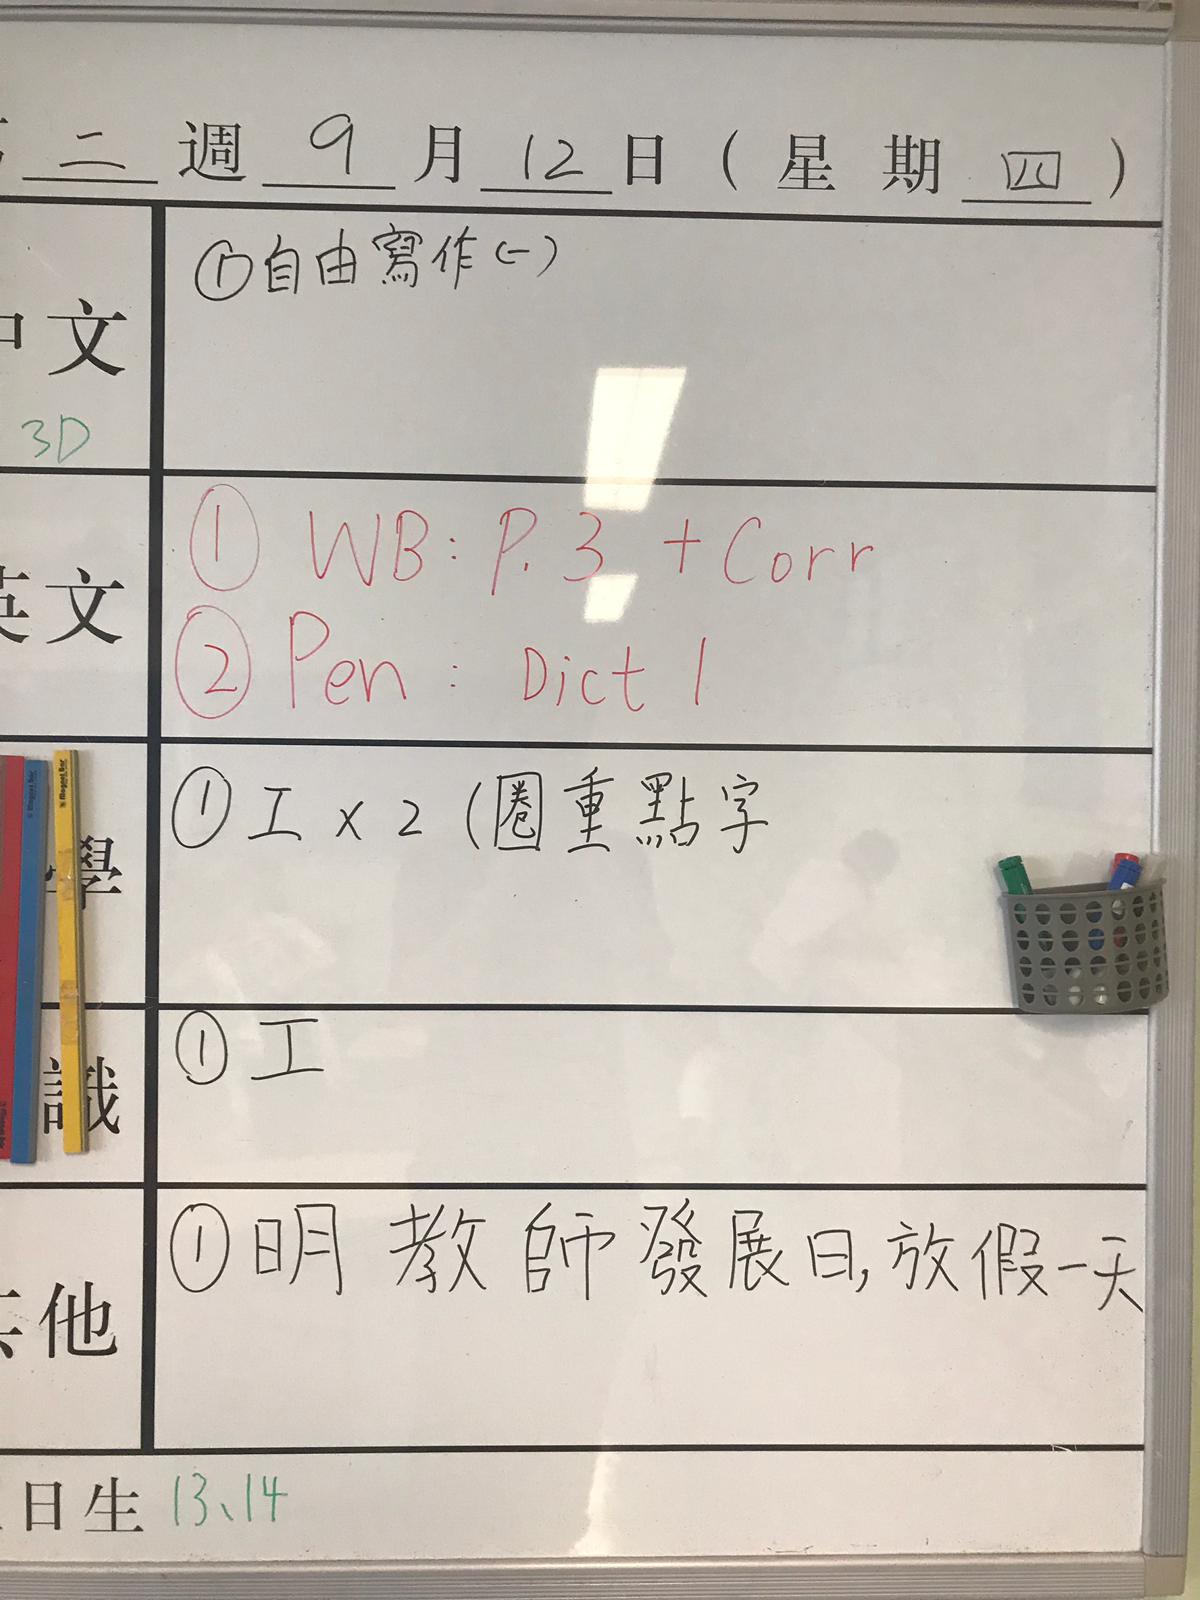 二 週 9 月 12 日 ( 星 期 四 )
中文
3D
① 自由寫作(一)
英文
① WB: P. 3 + Corr
② Pen : Dict 1
學
① 工 x 2 (圈重點字
識
① 工
其他
① 明 教師發展日, 放假一天
日生 13、14